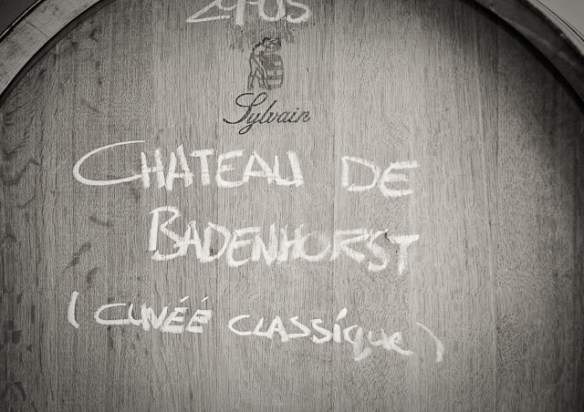 Sylvain
CHATEAU DE
BADENHORST
(CUVÉÉ CLASSíque)